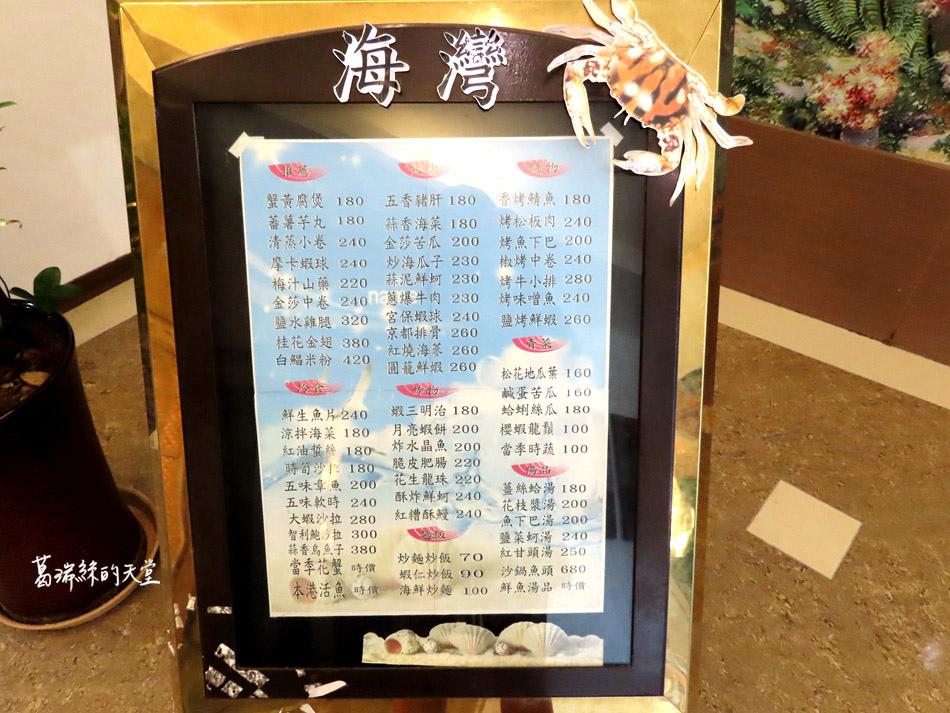 海灣
推薦
蟹黃腐煲 180
蕃薯芋丸 180
清蒸小卷 240
摩卡蝦球 240
梅汁山藥 220
金莎中卷 240
鹽水雞腿 320
桂花金翅 380
白鯧米粉 420
冷食
鮮生魚片 240
涼拌海菜 180
紅油蜇絲 180
時筍沙拉 180
五味章魚 200
五味軟時 240
大蝦沙拉 280
智利鮑沙拉 300
蒜香烏魚子 380
當季花蟹 時價
本港活魚 時價
五香豬肝 180
蒜香海菜 180
金莎苦瓜 200
炒海瓜子 230
蒜泥鮮蚵 230
蔥爆牛肉 230
宮保蝦球 240
京都排骨 260
紅燒海蔘 260
圓龍鮮蝦 260
炸物
蝦三明治 180
月亮蝦餅 200
炸水晶魚 200
脆皮肥腸 220
花生龍珠 220
酥炸鮮蚵 240
紅糟酥鰻 240
麵飯
炒麵炒飯 70
蝦仁炒飯 90
海鮮炒麵 100
烤物
香烤鯖魚 180
烤松板肉 240
烤魚下巴 200
椒烤中卷 240
烤牛小排 280
烤味噌魚 240
鹽烤鮮蝦 260
青菜
松花地瓜葉 160
鹹蛋苦瓜 160
蛤蜊絲瓜 180
櫻蝦龍鬚 100
當季時蔬 100
湯品
薑絲蛤湯 180
花枝漿湯 200
魚下巴湯 200
鹽菜蚵湯 240
紅甘頭湯 250
沙鍋魚頭 680
鮮魚湯品 時價
葛瑞絲的天堂